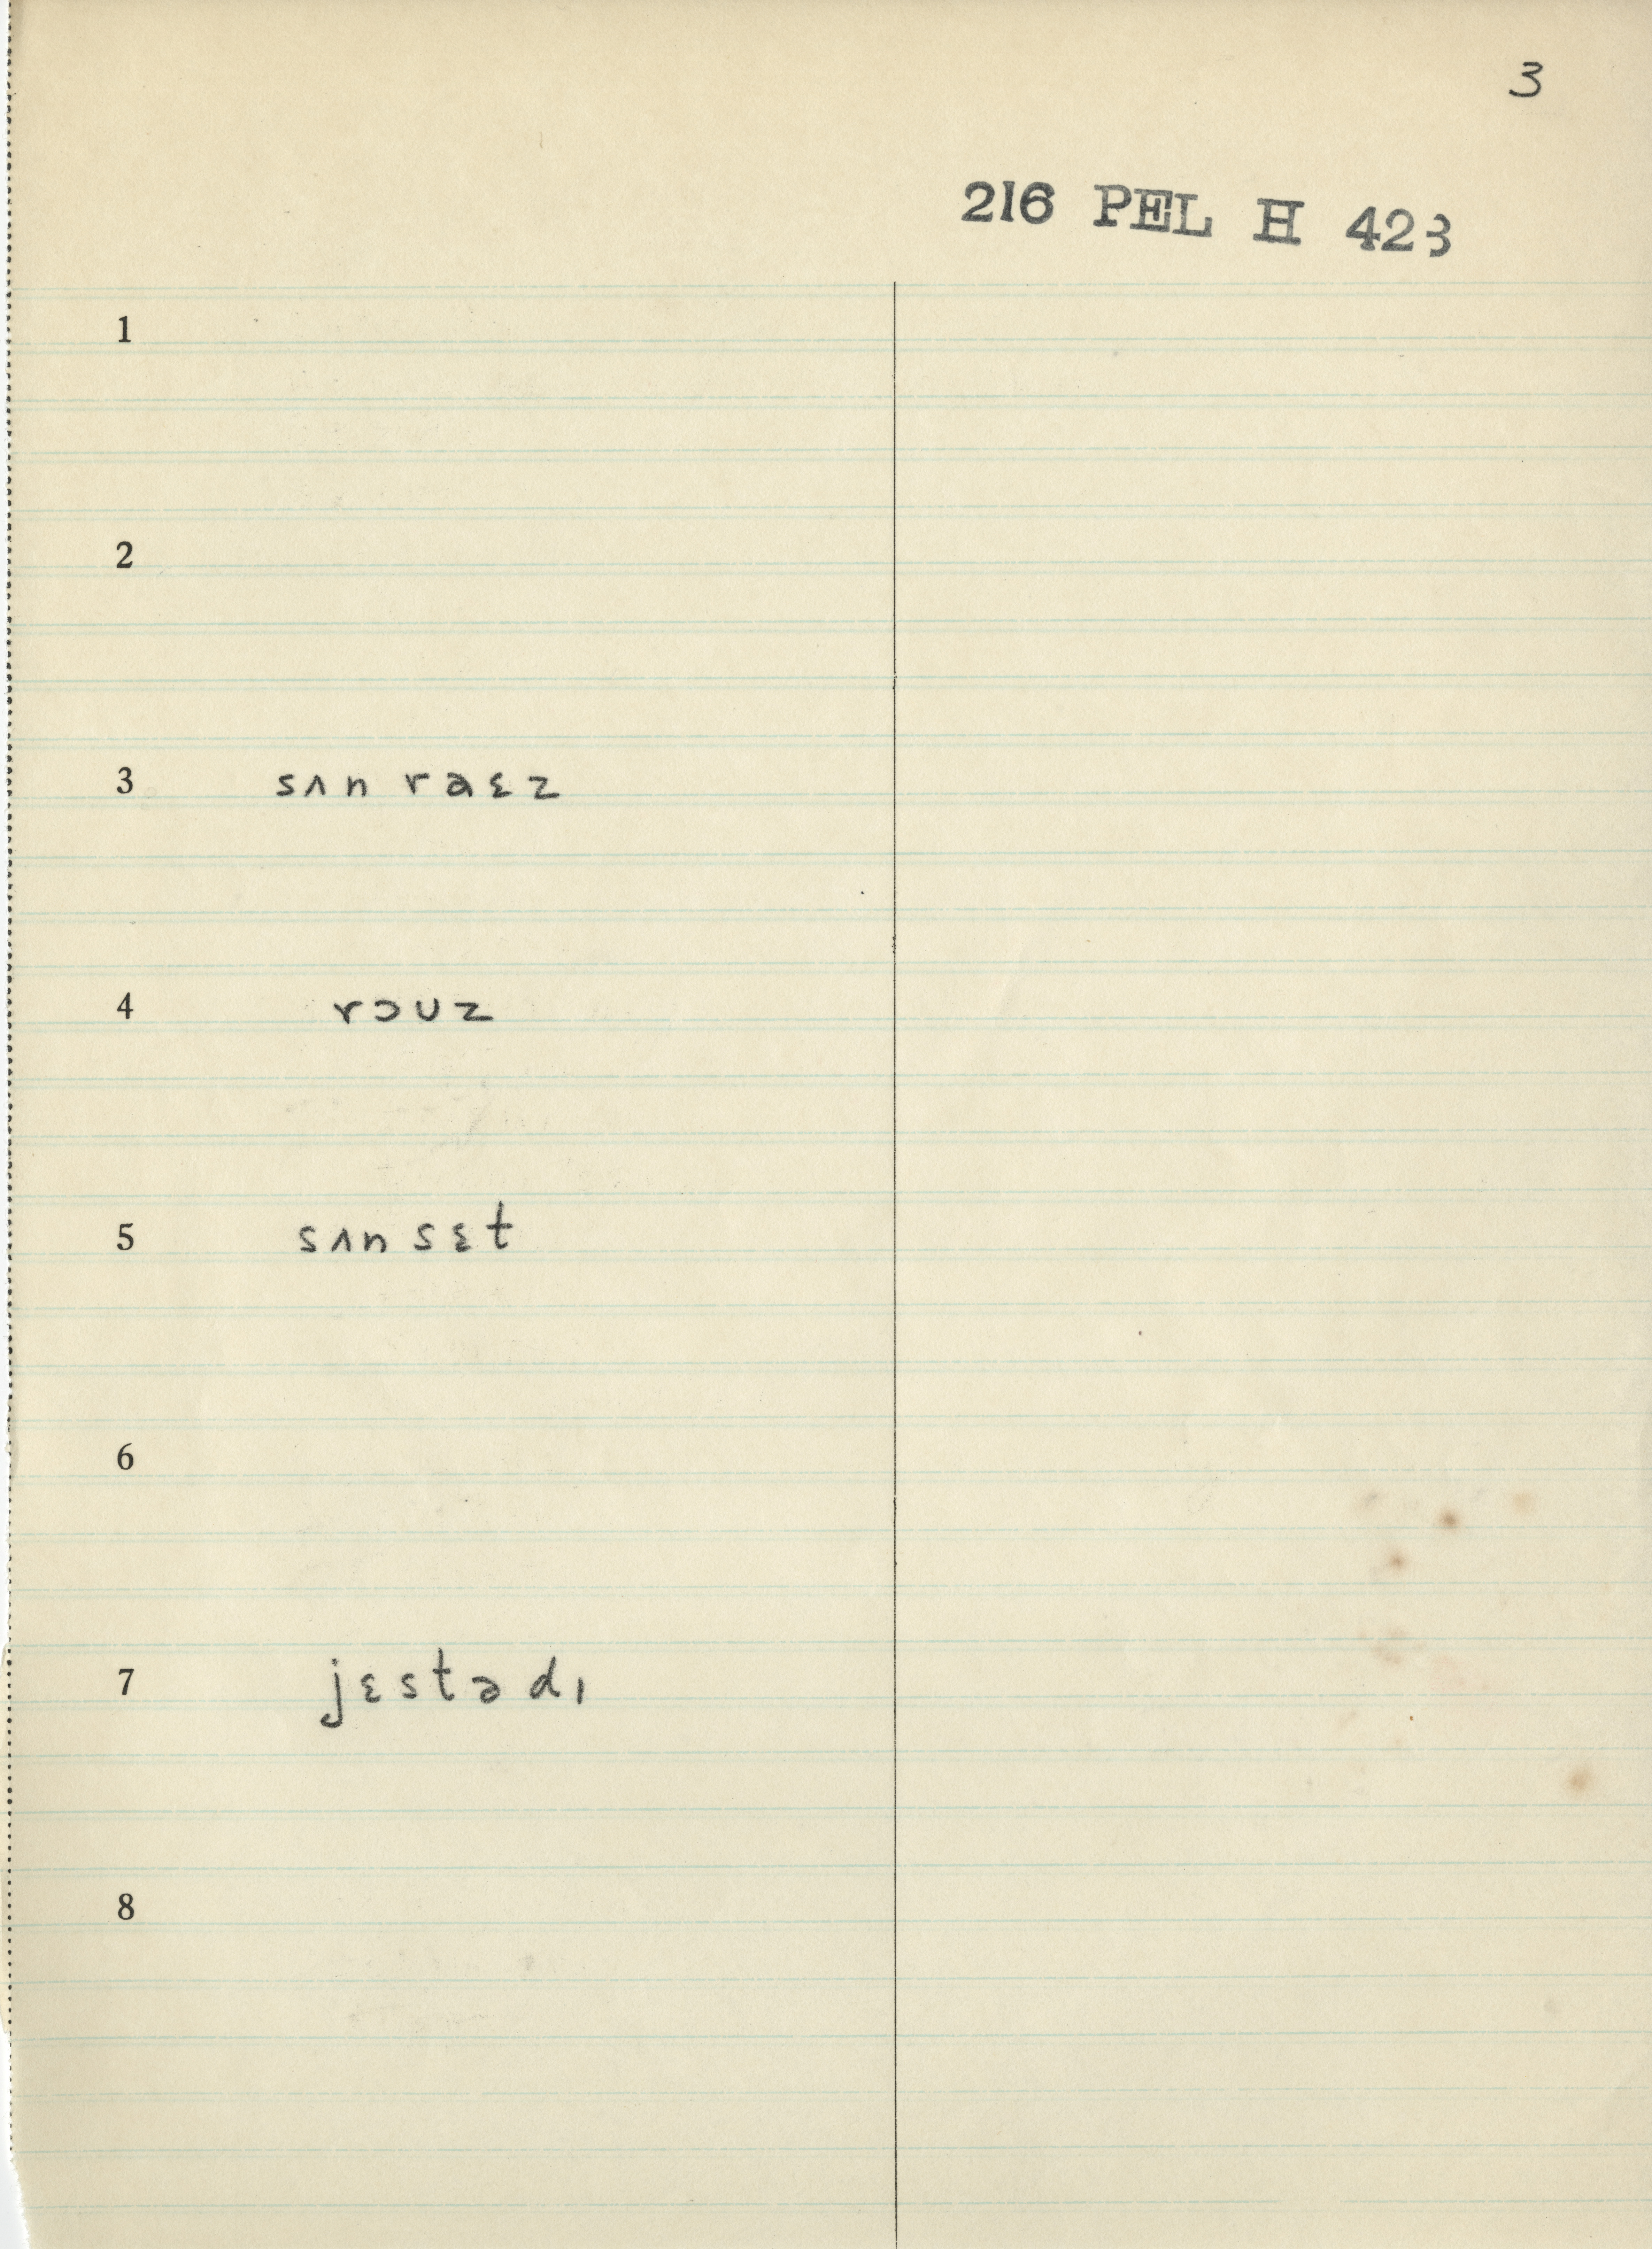 3
216 PEL H 423
1
2
3 sʌn raɛz
4 rɔʊz
5 sʌn sɛt
6
7 jɛstədɪ
8